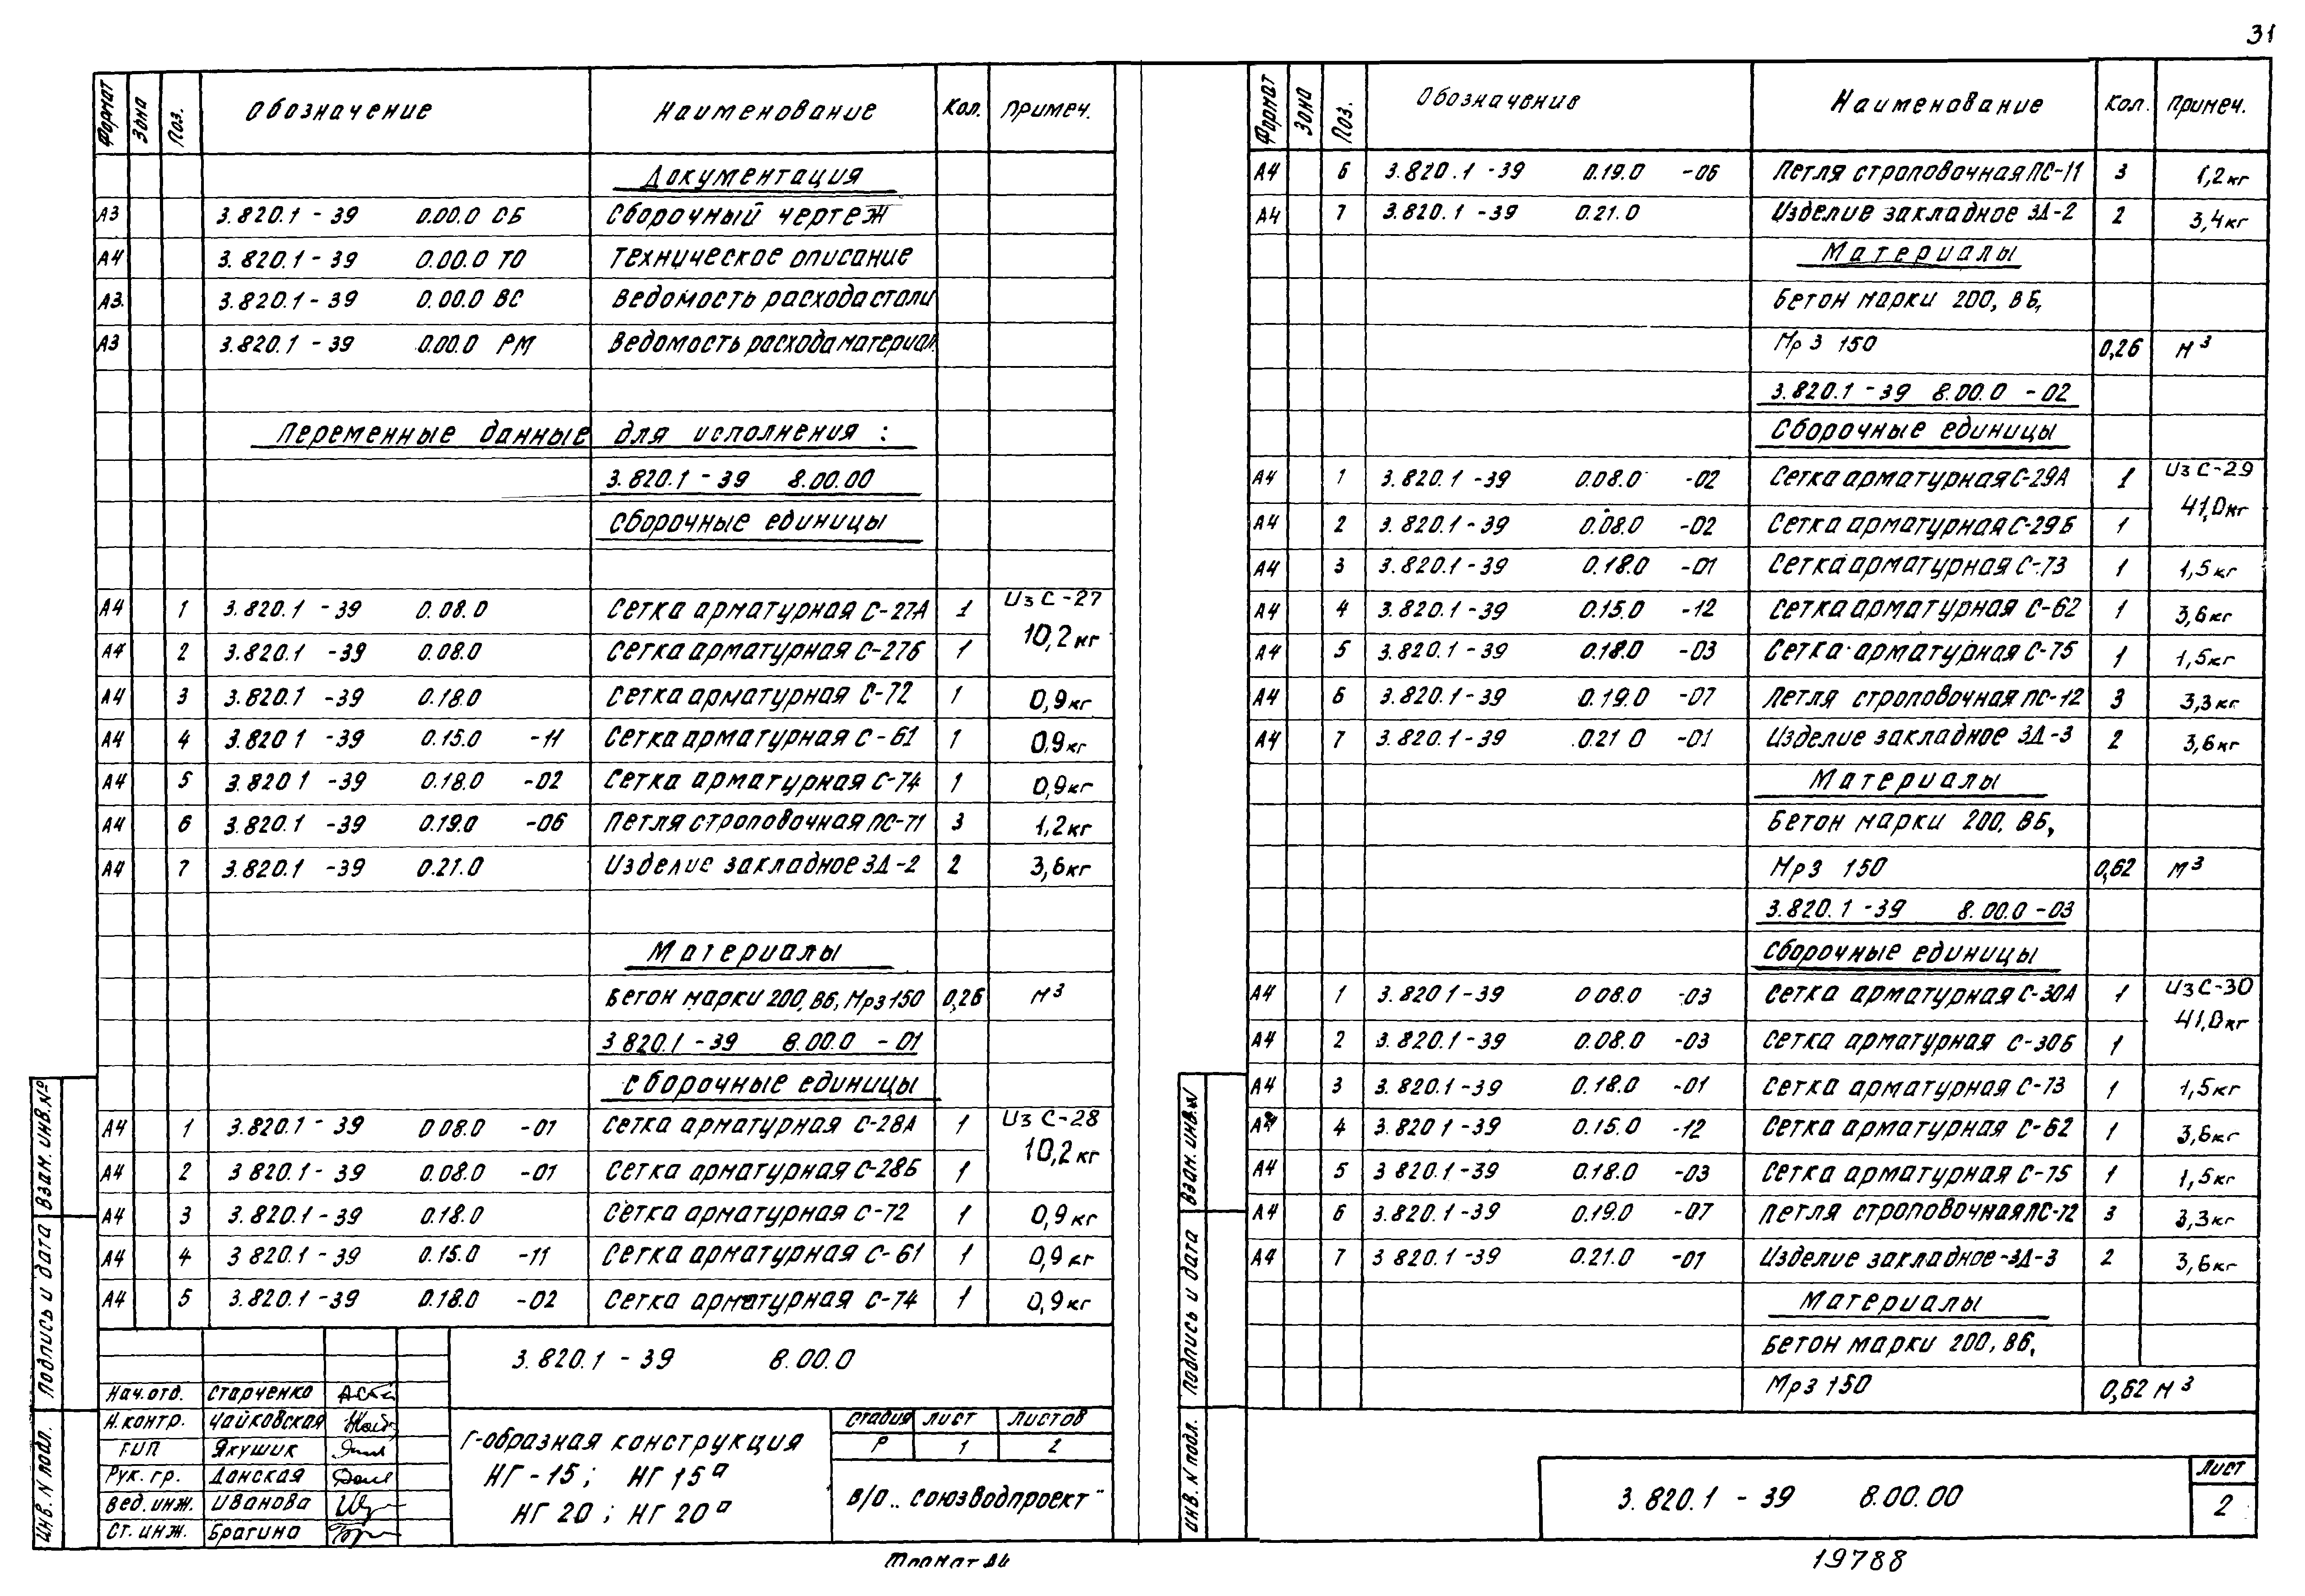 31
Формат Зона Поз. Обозначение Наименование Кол. Примеч.
Документация
А3 3.820.1-39 0.00.0 СБ Сборочный чертеж
А4 3.820.1-39 0.00.0 ТО Техническое описание
А3 3.820.1-39 0.00.0 ВС Ведомость расхода стали
А3 3.820.1-39 0.00.0 РМ Ведомость расхода материал.
Переменные данные для исполнения:
3.820.1-39 8.00.00
Сборочные единицы
А4 1 3.820.1-39 0.08.0 Сетка арматурная С-27А 1 Из С-27
10,2кг
А4 2 3.820.1-39 0.08.0 Сетка арматурная С-27Б 1
А4 3 3.820.1-39 0.18.0 Сетка арматурная С-72 1 0,9кг
А4 4 3.820 1-39 0.15.0 -11 Сетка арматурная С-61 1 0,9кг
А4 5 3.820 1-39 0.18.0 -02 Сетка арматурная С-74 1 0,9кг
А4 6 3.820.1-39 0.19.0 -06 Петля строповочная ПС-11 3 1,2кг
А4 7 3.820.1-39 0.21.0 Изделие закладное ЗД-2 2 3,6кг
Материалы
Бетон марки 200, В6, Мрз150 0,26 м³
3 820.1-39 8.00.0 -01
Сборочные единицы
А4 1 3.820.1-39 0 08.0 -01 Сетка арматурная С-28А 1 Из С-28
10,2кг
А4 2 3 820.1-39 0.08.0 -01 Сетка арматурная С-28Б 1
А4 3 3.820.1-39 0.18.0 Сетка арматурная С-72 1 0,9кг
А4 4 3 820.1-39 0.15.0 -11 Сетка арматурная С-61 1 0,9кг
А4 5 3.820.1-39 0.18.0 -02 Сетка арматурная С-74 1 0,9кг
3.820.1-39 8.00.0
Нач.отд. Старченко
Н.контр. Чайковская
ГИП Якушик
Рук. гр. Донская
Вед. инж. Иванова
Ст. инж. Брагина
Г-образная конструкция
НГ-15; НГ 15а
НГ 20; НГ 20а
Стадия Лист Листов
Р 1 2
в/о „Союзводпроект"
Формат А4
Инв. N подл. Подпись и дата Взам. инв.№
Формат Зона Поз. Обозначение Наименование Кол. Примеч.
А4 6 3.820.1-39 0.19.0 -06 Петля строповочная ПС-11 3 1,2кг
А4 7 3.820.1-39 0.21.0 Изделие закладное ЗД-2 2 3,4кг
Материалы
Бетон марки 200, В6,
Мрз 150 0,26 м³
3.820.1-39 8.00.0 -02
Сборочные единицы
А4 1 3.820.1-39 0.08.0 -02 Сетка арматурная С-29А 1 Из С-29
41,0кг
А4 2 3.820.1-39 0.08.0 -02 Сетка арматурная С-29Б 1
А4 3 3.820.1-39 0.18.0 -01 Сетка арматурная С-73 1 1,5кг
А4 4 3.820.1-39 0.15.0 -12 Сетка арматурная С-62 1 3,6кг
А4 5 3.820.1-39 0.18.0 -03 Сетка арматурная С-75 1 1,5кг
А4 6 3.820.1-39 0.19.0 -07 Петля строповочная ПС-12 3 3,3кг
А4 7 3.820.1-39 0.21 0 -01 Изделие закладное ЗД-3 2 3,6кг
Материалы
Бетон марки 200, В6,
Мрз 150 0,62 м³
3.820.1-39 8.00.0-03
Сборочные единицы
А4 1 3.820 1-39 0 08.0 -03 Сетка арматурная С-30А 1 Из С-30
41,0кг
А4 2 3.820.1-39 0.08.0 -03 Сетка арматурная С-30Б 1
А4 3 3.820.1-39 0.18.0 -01 Сетка арматурная С-73 1 1,5кг
А4 4 3.820 1-39 0.15.0 -12 Сетка арматурная С-62 1 3,6кг
А4 5 3 820.1-39 0.18.0 -03 Сетка арматурная С-75 1 1,5кг
А4 6 3.820.1-39 0.19.0 -07 Петля строповочная ПС-12 3 3,3кг
А4 7 3 820.1-39 0.21.0 -01 Изделие закладное-ЗД-3 2 3,6кг
Материалы
Бетон марки 200, В6,
Мрз 150 0,62 м³
3.820.1-39 8.00.00
Лист
2
Инв. N подл. Подпись и дата Взам. инв.N
19788